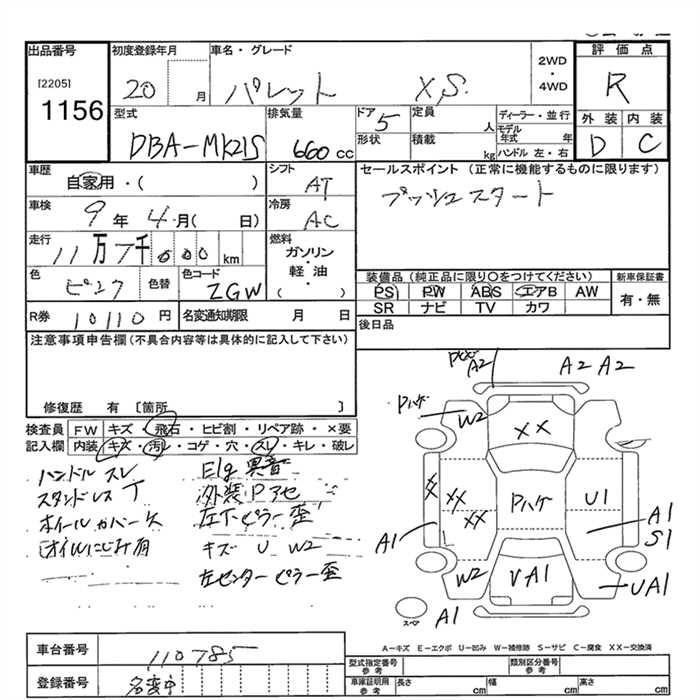 出品番号
[2205]
1156
初度登録年月
20 月
車名・グレード
パレット XS
2WD
・
4WD
評価点
R
型式
DBA-MK21S
排気量
660 cc
ドア
5
形状
定員
人
積載
kg
ディーラー・並行
モデル
年式 年
ハンドル 左・右
外装 内装
D C
車歴
自家用・( )
シフト
AT
セールスポイント (正常に機能するものに限ります)
プッシュスタート
車検
9 年 4 月( 日)
冷房
AC
走行
11万7千000 km
燃料
ガソリン
軽油・
( )
色
ピンク
色替
色コード
ZGW
装備品(純正品に限り〇をつけてください)
PS PW ABS エアB AW
SR ナビ TV カワ
新車保証書
有・無
R券 10110 円
名変通知期限 月 日
後日品
注意事項申告欄(不具合内容等は具体的に記入して下さい)
修復歴 有 [箇所 ]
検査員
記入欄
FW キズ・飛石・ヒビ割・リペア跡・×要
内装 キズ・汚レ・コゲ・穴・スレ・キレ・破レ
ハンドルスレ
オイルにじみ有
Elg 異音
外装Pアセ
左下ピラー歪
キズ U W2
左センターピラー歪
A2
A2 A2
Pハゲ
W2
XX
XX
XX
XX
Pハゲ
U1
A1
A1
S1
W2
VA1
UA1
スペア
A1
A-キズ E-エクボ U-凹み W-補修跡 S-サビ C-腐食 XX-交換済
車台番号
110785
登録番号
名変中
型式指定番号
参考
類別区分番号
参考
車庫証明用
参考
長さ cm
幅 cm
高さ cm